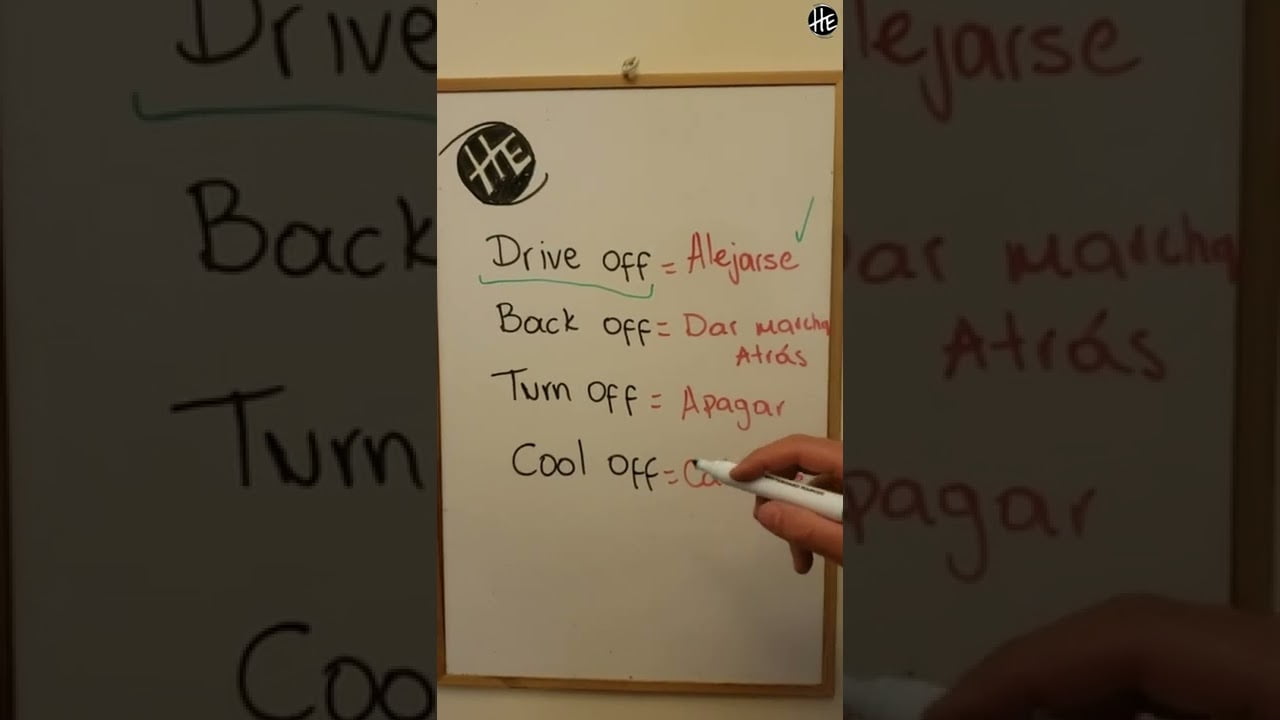 HE
HE
Drive off = Alejarse
Back off = Dar marcha
Atrás
Turn off = Apagar
Cool off =